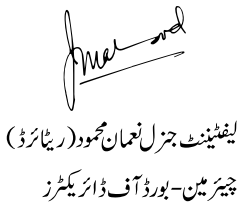 لیفٹیننٹ جنرل نعمان محمود (ریٹائرڈ)
چیئرمین - بورڈ آف ڈائریکٹرز